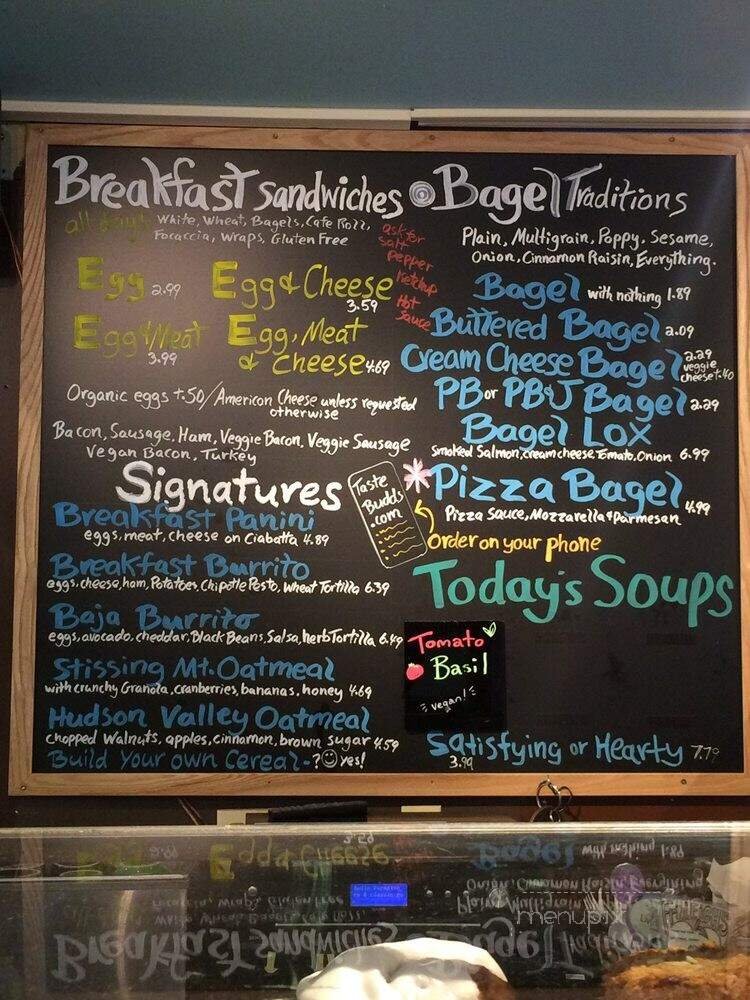 Breakfast Sandwiches
all day!
White, Wheat, Bagels, Cafe Roll,
Focaccia, Wraps, Gluten Free
ask for
salt
pepper
Ketchup
Hot
Sauce
Egg 2.99
Egg & Cheese
3.59
Egg & Meat
3.99
Egg, Meat
& Cheese 4.69
Organic eggs +.50/American Cheese unless requested
otherwise
Bacon, Sausage, Ham, Veggie Bacon, Veggie Sausage
Vegan Bacon, Turkey
Signatures
Breakfast Panini
eggs, meat, cheese on Ciabatta 4.89
Breakfast Burrito
eggs, cheese, ham, Potatoes, Chipotle Pesto, Wheat Tortilla 6.39
Baja Burrito
eggs, avocado, cheddar, Black Beans, Salsa, herb Tortilla 6.49
Stissing Mt. Oatmeal
with crunchy Granola, cranberries, bananas, honey 4.69
Hudson Valley Oatmeal
chopped Walnuts, apples, cinnamon, brown sugar 4.59
Build Your own Cereal-? yes!
Taste
Budds
.com
Order on your phone
Bagel Traditions
Plain, Multigrain, Poppy, Sesame,
Onion, Cinnamon Raisin, Everything.
Bagel with nothing 1.89
Buttered Bagel 2.09
Cream Cheese Bagel 2.29
veggie
cheese +.40
PB or PB&J Bagel 2.29
Bagel Lox
Smoked Salmon, cream cheese, Tomato, Onion 6.99
Pizza Bagel 4.99
Pizza Sauce, Mozzarella & Parmesan
Today's Soups
Tomato
Basil
vegan!
Satisfying or Hearty 7.79
3.99
menupix